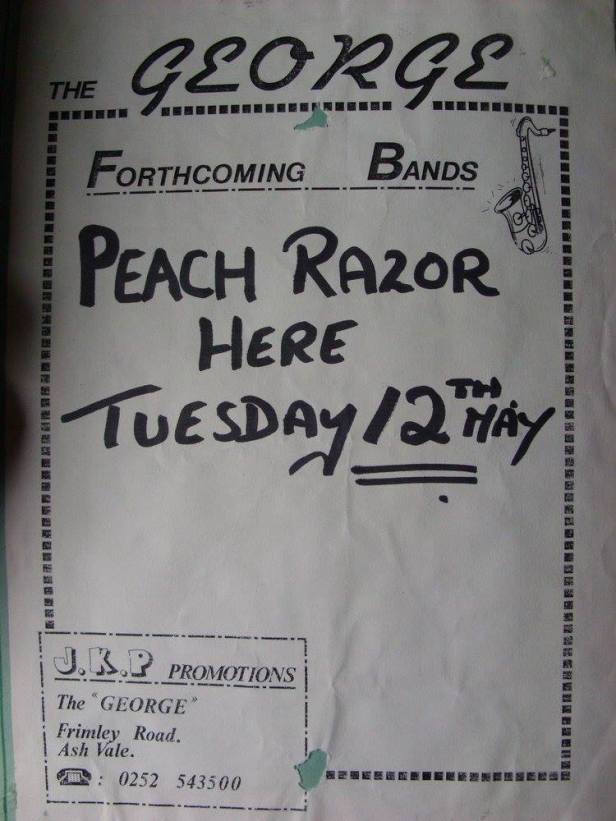 THE GEORGE
FORTHCOMING BANDS
PEACH RAZOR
HERE
TUESDAY 12TH MAY
J.K.P PROMOTIONS
The "GEORGE"
Frimley Road.
Ash Vale.
☎: 0252 543500